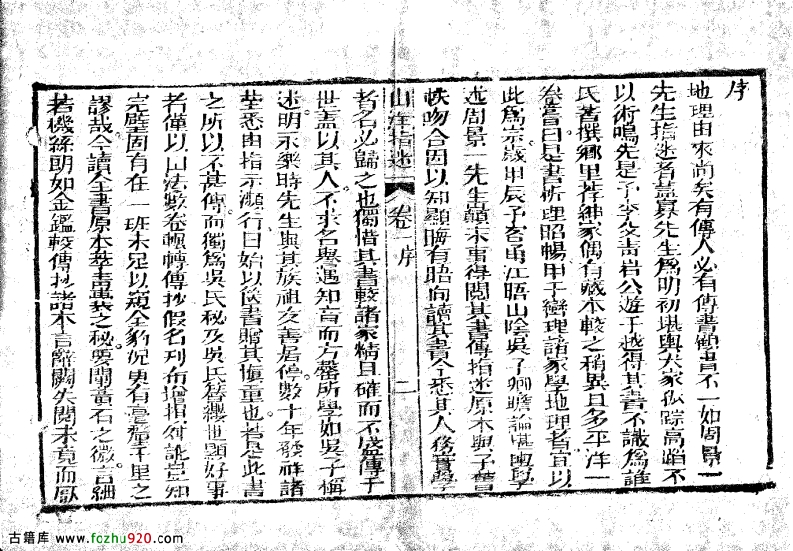 序
地理由來尚矣有傳人必有傳書顧書不一如周景一
先生指迷者蓋寡先生爲明初堪輿大家仙踪高蹈不
以術鳴先是予李父青岩公遊于越得其書不識爲誰
氏著撰鄉里荐紳家偶有藏本較之稍異且多平洋一
卷嘗曰是書析理昭暢甲于巒理諸家學地理者宜以
此爲宗歲甲辰予客甬江晤山陰吳子卿瞻論堪輿學
述周景一先生顛末事得閱其書傳指迷原本與予舊
帙吻合因以知顯晦有時向讀其書今悉其人務實學
山洋指迷 卷一序 二
者名必歸之也獨惜其書較諸家精且確而不盛傳于
世蓋以其人不求名與遇知音而方罄所學如吳子稱
述明永樂時先生與其族祖友善居停數十年發祥諸
塋悉由指示瀕行日始以後書贈其愼重也若是此書
之所以不甚傳而獨爲吳氏秘及吳氏替纓世顯好事
者僅以山法數卷輾轉傳抄假名列布增損舛訛豈知
完璧固有在一班未足以窺全豹況更有毫釐千里之
謬哉今讀全書原本發青囊之秘要闡黃石之微言細
若機絲朗如金鑑較傳抄諸本言辭闕失閱未竟而厭
古籍库 www.fozhu920.com